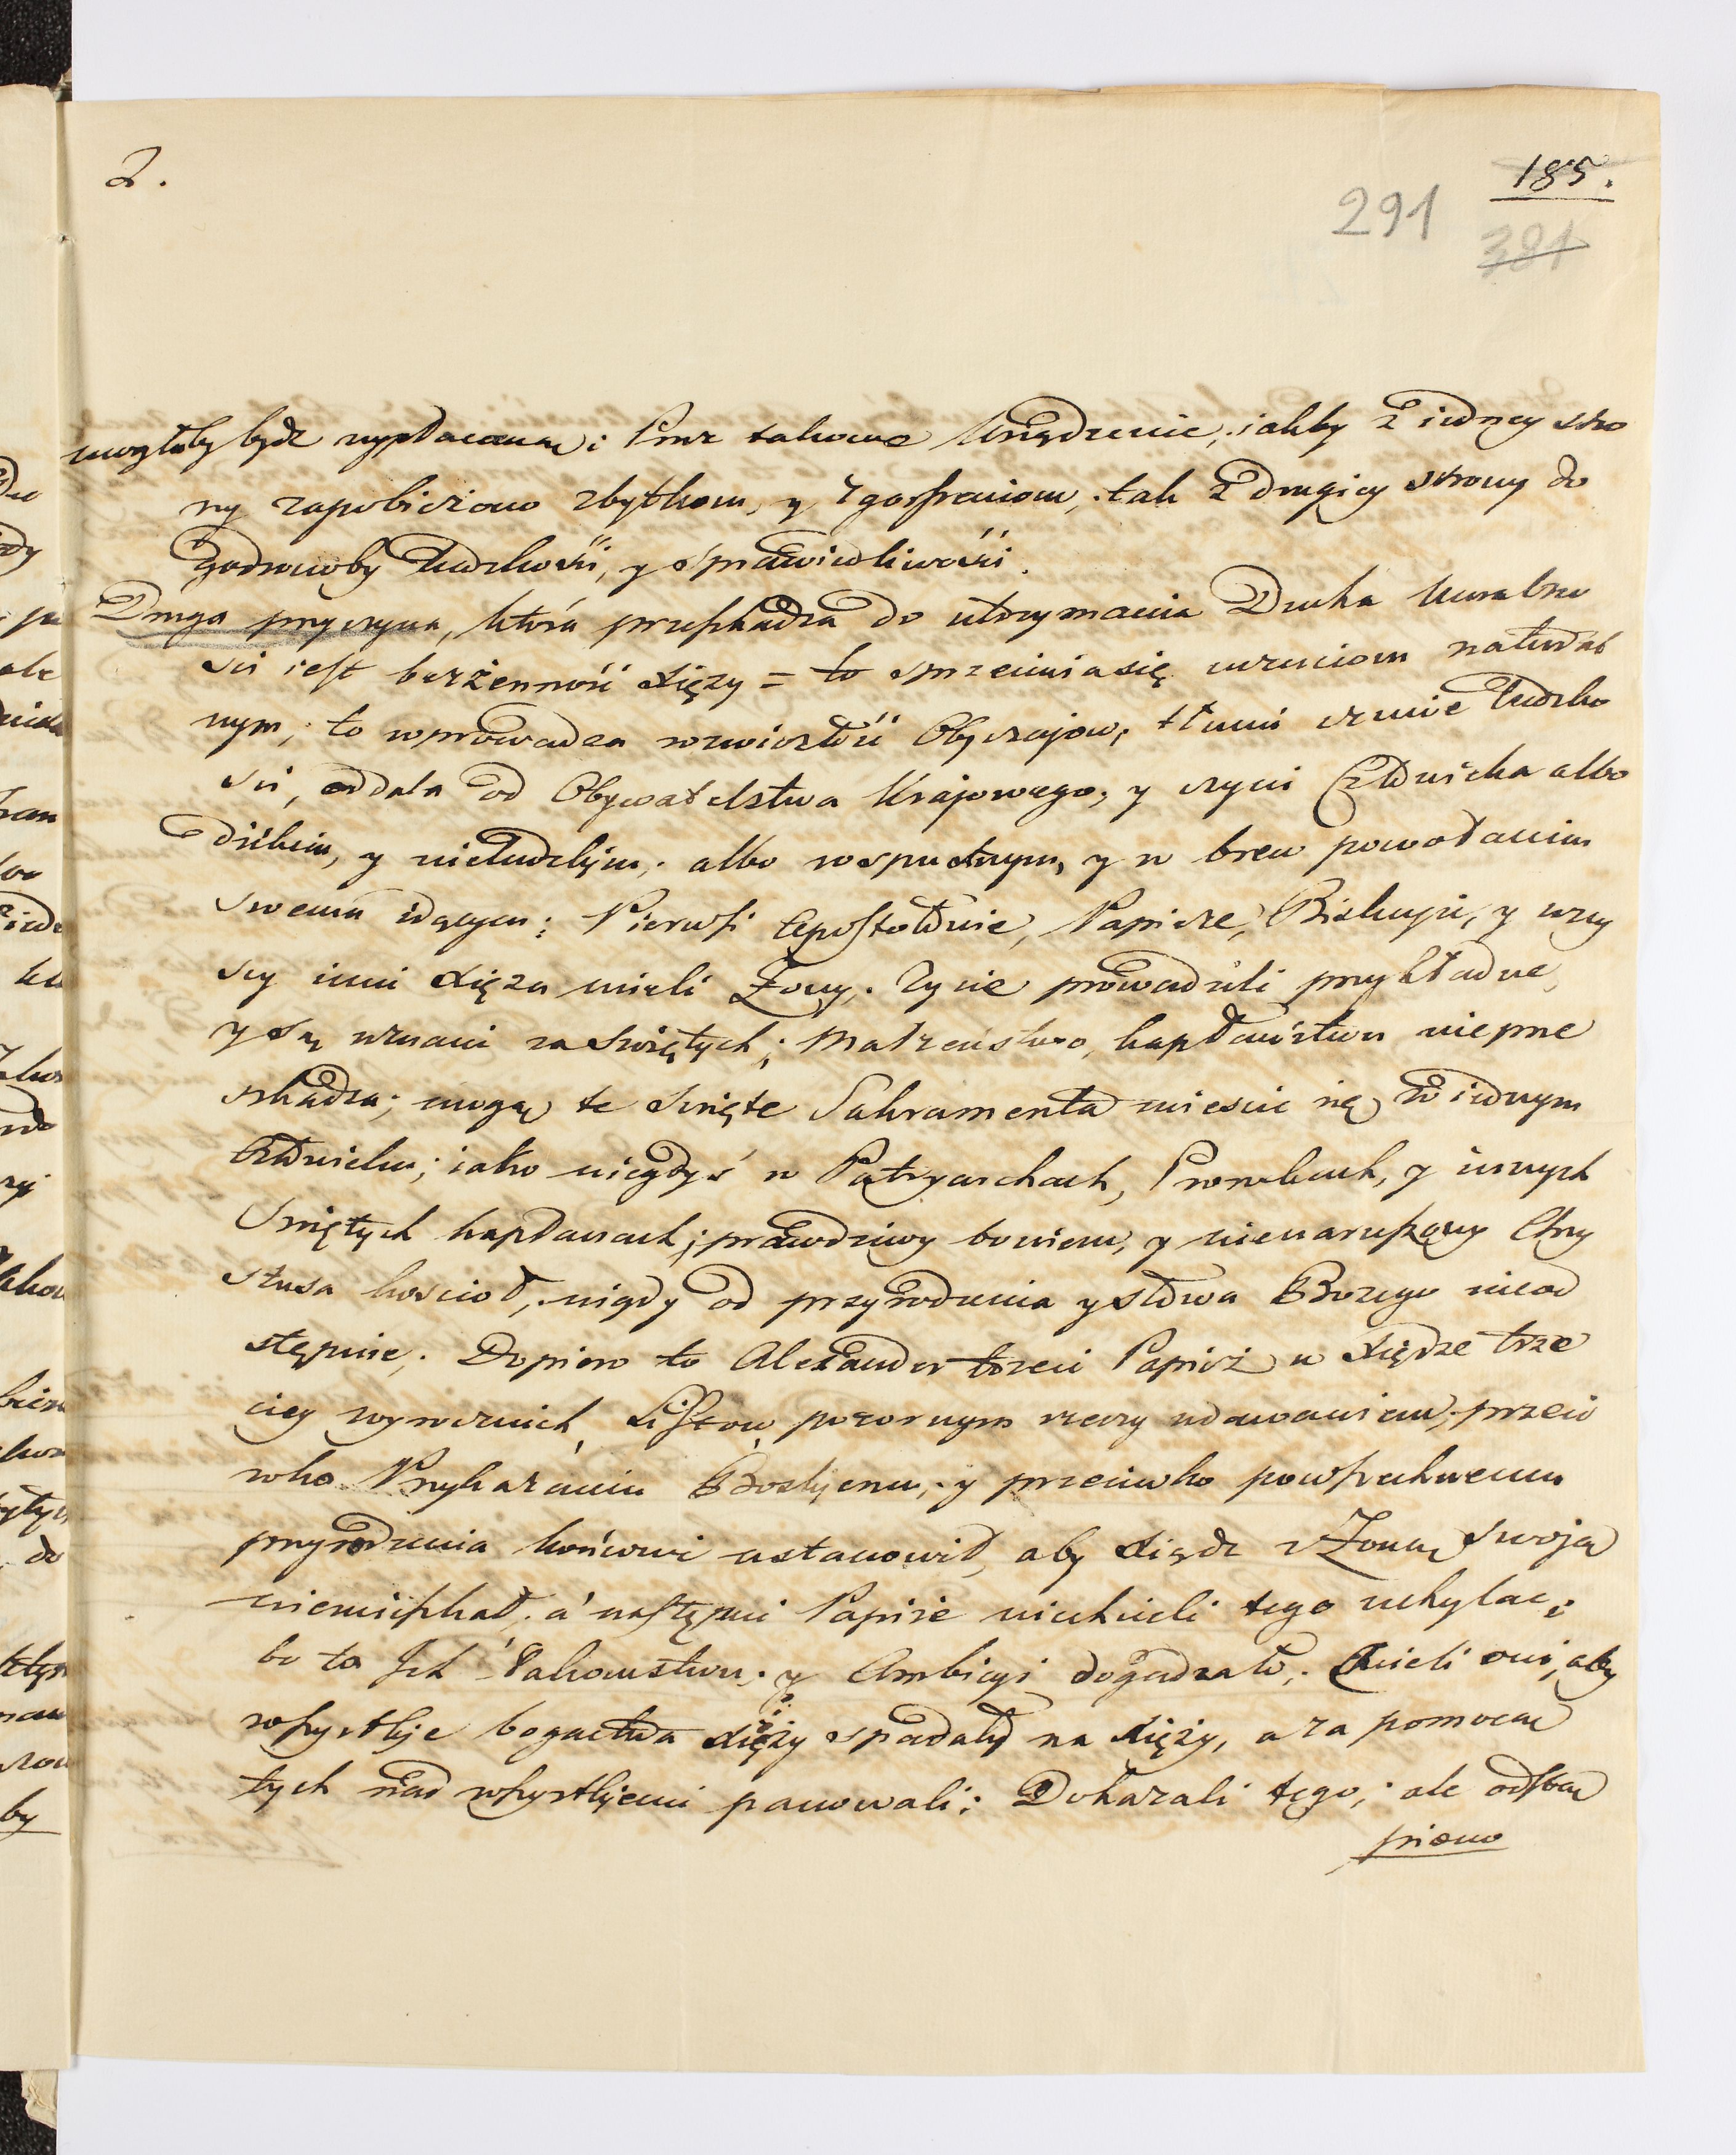 2.
185.
291
381
mogłaby bydź wypłacaną: Przez takowe Urządzenie, iakby z iedney stro
ny zapobieżono zbytkom, y zgorszeniom, tak z drugiey strony do
godzonoby ludzkości, y sprawiedliwości.
Druga przyczyna, która przeszkadza do utrzymania Ducha moralno
ści iest bezżenność Xięży = to sprzeciwia się uczuciom natural
nym, to wprowadza rozwiozłość Obyczajow, tłumi czucie ludzko
ści, oddala od Obywatelstwa Krajowego, y czyni Człowieka albo
dzikim, y nieludzkjm, albo rospustnym, y w brew powołaniu
swemu idącym; Pierwsi Apostołowie, Papieże, Biskupi, y wszy
scy inni Xięża mieli Żony, życie prowadzili przykładne,
y są uznani za Świętych; Małżeństwo, kapłaństwu nieprze
szkadza; mogą te Święte Sakramenta mieścić się w iednym
Człowieku; iako niegdyś w Patryarchach, Prorokach, y innych
Świętych kapłanach; prawdziwy bowiem, y nienaruszony Chry
stusa kościoł, nigdy od przyrodzenia y słowa Bozego nieod
stępuie, Dopiero to Alexander trzeci Papież w Xiędze trze
ciey wyrocznich Listow, pozornym rzeczy udawaniem, przeciw
wko Przykazaniu Boskjemu, y przeciwko powszechnemu
przyrodzenia końcowi ustanowił, aby Xiądz z Żoną swoją
niemieszkał, a następni Papieże niechcieli tego uchylać,
bo to Ich Łakomstwu, y Ambicyi dogadzało, Chcieli oni, aby
wszystkje bogactwa Xięży spadały na Xięży, a za pomocą
tych nad wszystkjemi panowali; Dokazali tego, ale odstą
piono